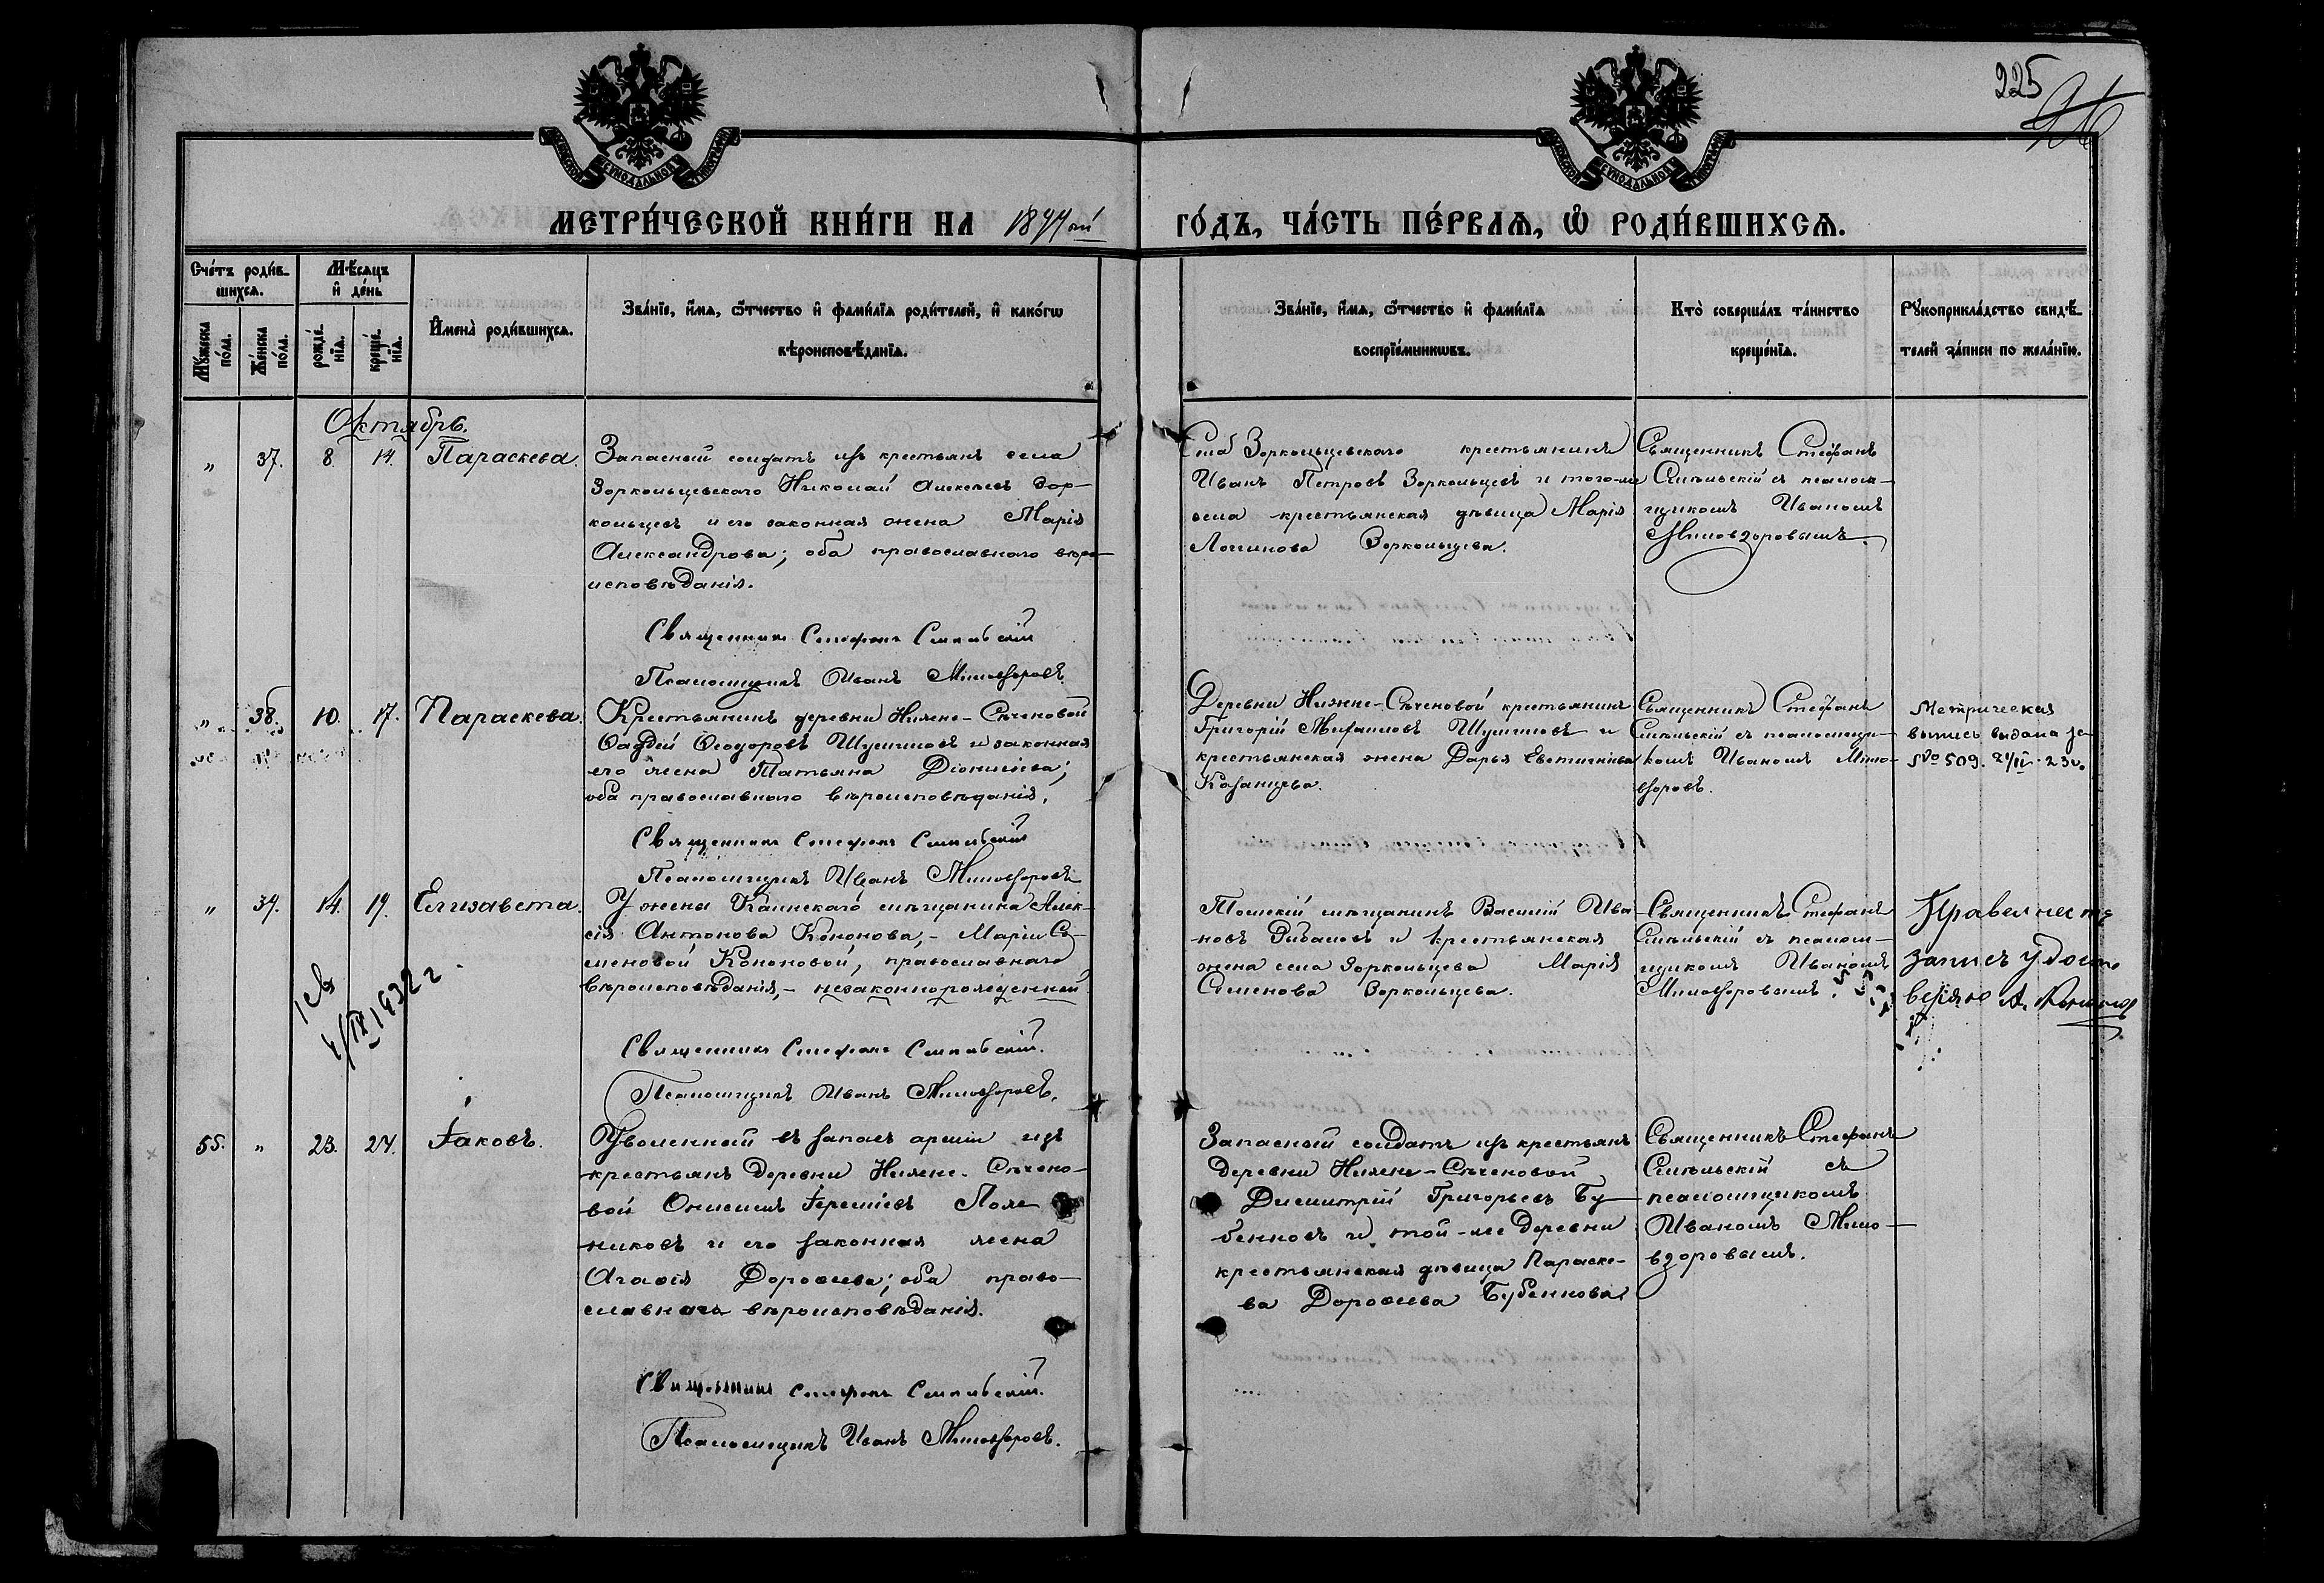 225
МОСКОВСКОЙ СѴНОДАЛЬНОЙ ТИПОГРАФІИ
МОСКОВСКОЙ СѴНОДАЛЬНОЙ ТИПОГРАФІИ
МЕТРИ́ЧЕСКОЙ КНИ́ГИ НА
ГО́ДЪ, ЧА́СТЬ ПЕ́РВАѦ, Ѡ҆ РОДИ́ВШИХСѦ.
Сче́тъ роди́в-
шихсѧ.
Мꙋ́жеска по́ла.
Же́нска по́ла.
Мѣ́сѧцъ
и҆ де́нь
рожде́-
нїѧ.
креще́-
нїѧ.
И҆мена̀ роди́вшихсѧ.
Зва́нїе, и҆́мѧ, ѻ҆́тчество и҆ фами́лїѧ роди́телей, и҆ како́гѡ
вѣроисповѣ́данїѧ.
Зва́нїе, и҆́мѧ, ѻ҆́тчество и҆ фами́лїѧ
воспрїе́мникѡвъ.
Кто̀ соверша́лъ та́инство
креще́нїѧ.
Рꙋкоприкла́дство свидѣ́-
телей за́писи по жела́нїю.
Октябрь.
„ 37. 8. 14. Параскева.
Запасный солдатъ изъ крестьянъ села
Зоркольцевскаго Николай Алексѣевъ Зор-
кольцевъ и его законная жена Марія
Александрова; оба православнаго вѣро-
исповѣданія.
Священникъ Стефанъ
Псаломщикъ Иванъ Миловзоровъ
Села Зоркольцевскаго крестьянинъ
Иванъ Петровъ Зоркольцевъ и того-же
села крестьянская дѣвица Марія
Логинова Зоркольцева.
Священникъ Стефанъ
съ псалом-
щикомъ Иваномъ
Миловзоровымъ.
„ 38. 10. 17. Параскева.
Крестьянинъ деревни Нижне-Сѣченовой
Ѳаддей Ѳеодоровъ и законная
его жена Татьяна Діонисіева;
оба православнаго вѣроисповѣданія.
Священникъ Стефанъ
Псаломщикъ Иванъ Миловзоровъ
Деревни Нижне-Сѣченовой крестьянинъ
Григорій Михаиловъ и
крестьянская жена Дарья
Казанцева.
Священникъ Стефанъ
съ псаломщи-
комъ Иваномъ Мило-
взоровъ.
Метрическая
выпись выдана за
№ 509.
„ 39. 14. 19. Елизавета.
У жены Каинскаго мѣщанина Алек-
сія Антонова Кононова, - Маріи Се-
меновой Кононовой, православнаго
вѣроисповѣданія, - незаконнорожденный
Священникъ Стефанъ
Псаломщикъ Иванъ Миловзоровъ.
Томскій мѣщанинъ Василій Ива-
новъ и крестьянская
жена села Зоркольцева Марія
Семенова Зоркольцева.
Священникъ Стефанъ
съ псалом-
щикомъ Иваномъ
Миловзоровымъ.
запись удосто
веряю А. Кононов
1932 г
55. „ 23. 24. Іаковъ.
Уволенный въ запасъ арміи изъ
крестьянъ деревни Нижне-Сѣчено-
вой Онисимъ Іереміевъ Поле-
никовъ и его законная жена
Агаѳія Дороѳеева; оба право-
славнаго вѣроисповѣданія.
Священникъ Стефанъ
Псаломщикъ Иванъ Миловзоровъ.
Запасный солдатъ изъ крестьянъ
деревни Нижне-Сѣченовой
Димитрій Григорьевъ Бу-
бенновъ и той-же деревни
крестьянская дѣвица Параске-
ва Дороѳеева Бубеннова
Священникъ Стефанъ
съ
псаломщикомъ
Иваномъ Мило-
взоровымъ.